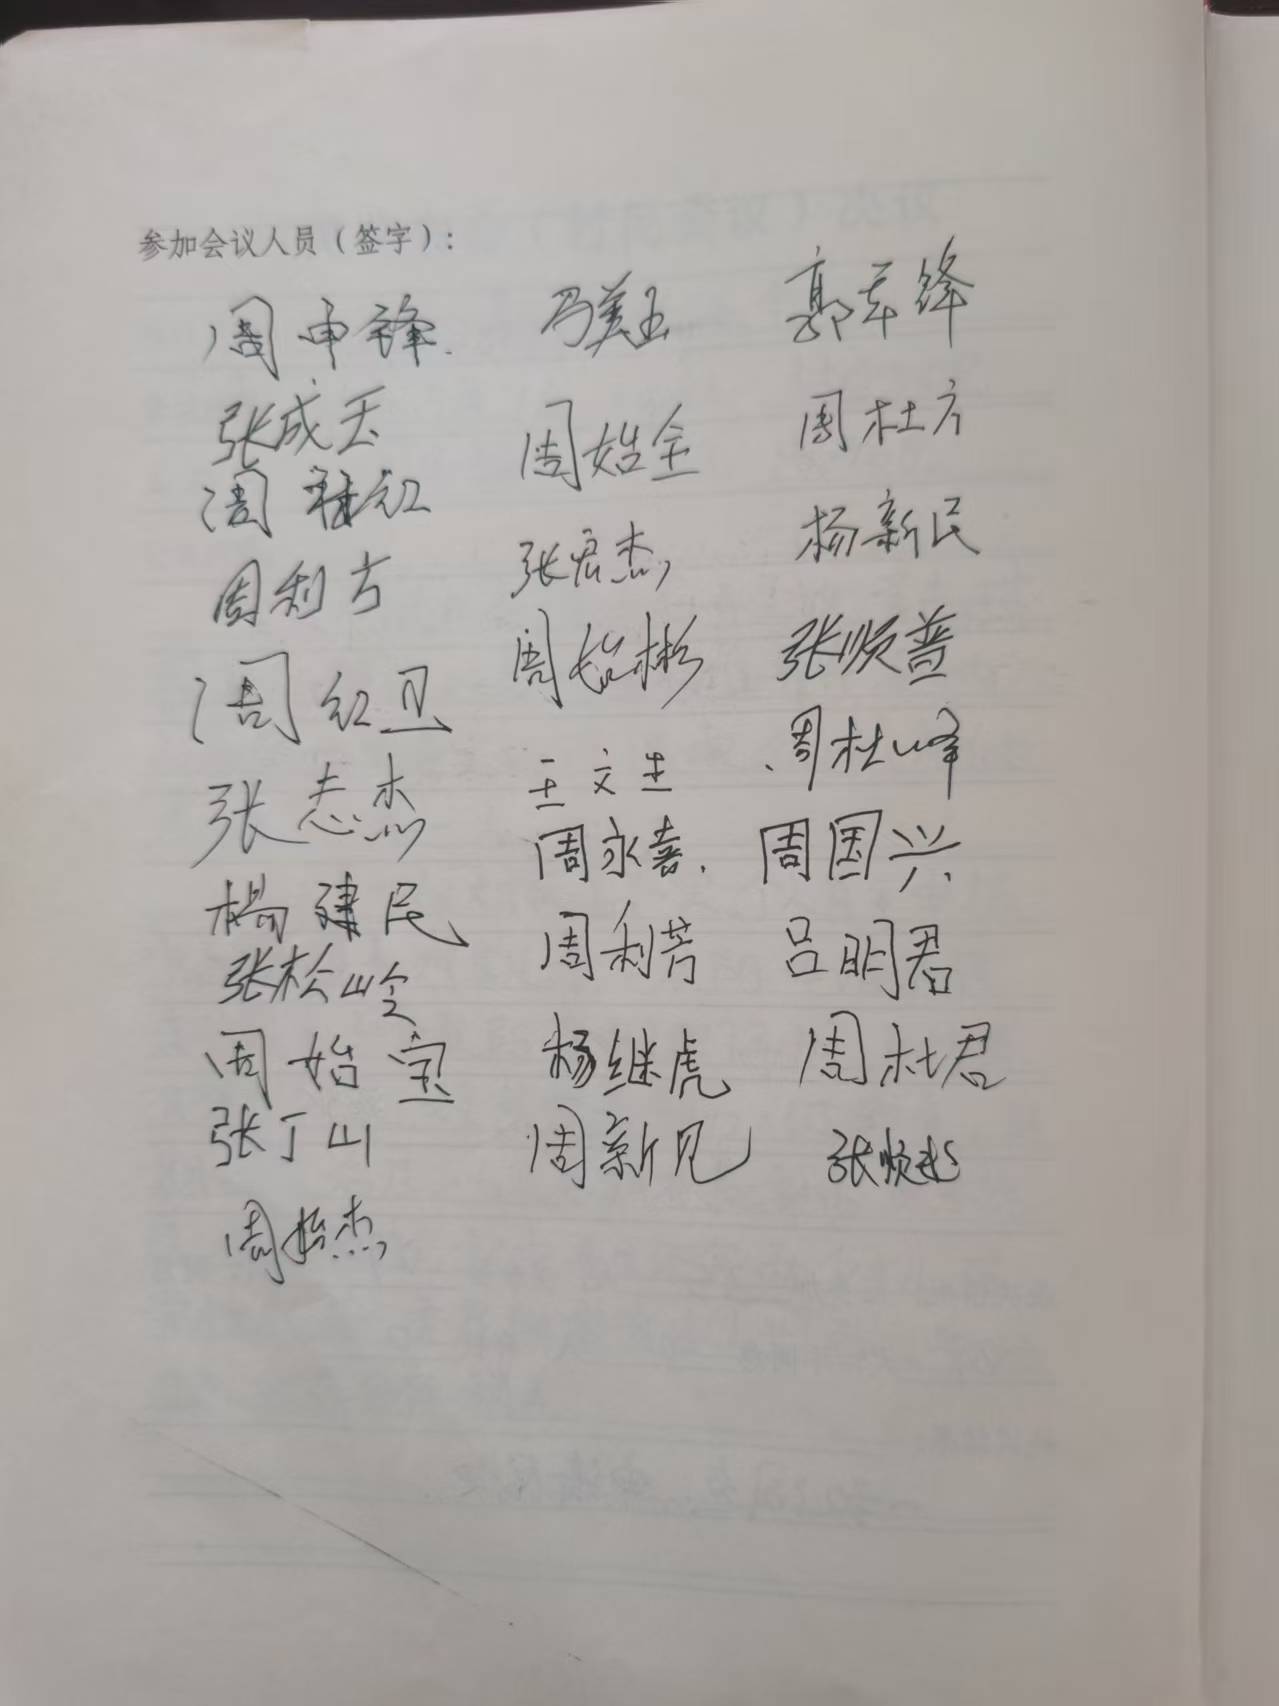 参加会议人员（签字）：
周申锋 冯美玉 郭军锋
张成玉 周始全 周杜方
周雅红 张宏杰 杨新民
周利方 周始彬 张顺普
周红卫 王文生 周杜峰
张志杰 周永喜 周国兴
楊建民 周利芳 吕明君
张松岭 杨继虎 周杜君
周始宝 周新见 张顺
张丁山
周始杰